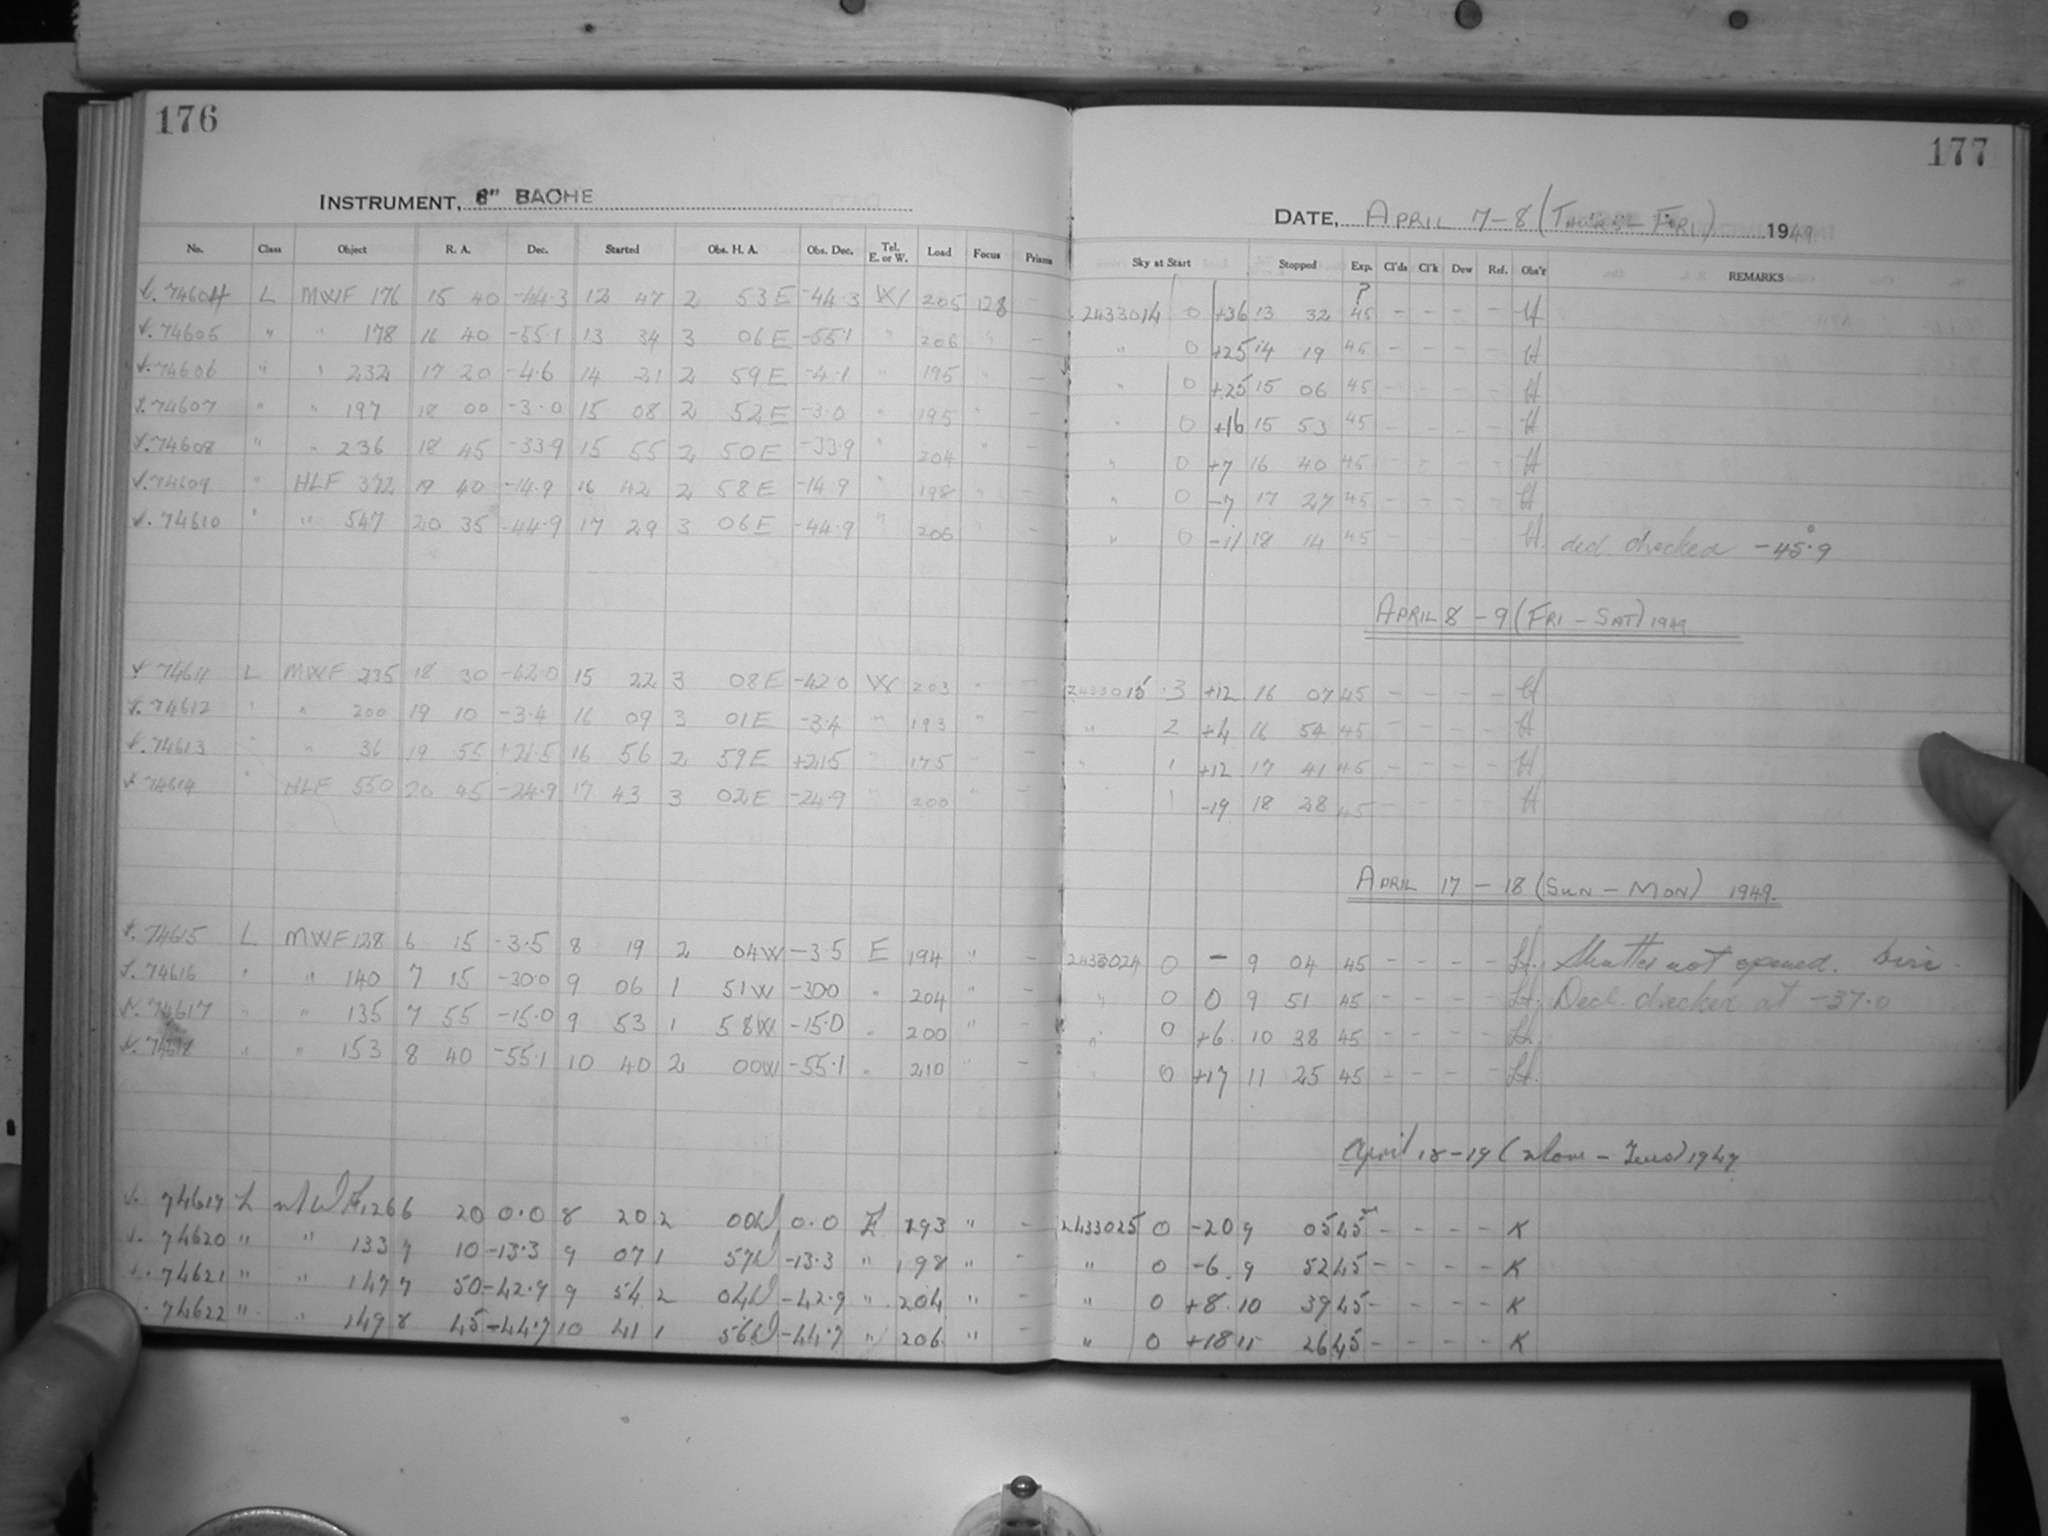 176
INSTRUMENT, 8" BACHE
No. Class Object R. A. Dec. Started Obs. H. A. Obs. Dec. Tel. E. or W. Load Focus Prisms
74604 L MWF 176 15 40 -44.3 12 47 2 53 E -44.3 W 205 128 -
74605 " " 178 16 40 -55.1 13 34 3 06 E -55.1 " 206 " -
74606 " " 232 17 20 -4.6 14 21 2 59 E -4.1 " 195 " -
74607 " " 197 18 00 -3.0 15 08 2 52 E -3.0 " 195 " -
74608 " " 236 18 45 -33.9 15 55 2 50 E -33.9 " 204 " -
74609 " HLF 372 19 40 -14.9 16 42 2 58 E -14.9 " 198 " -
74610 " " 547 20 35 -44.9 17 29 3 06 E -44.9 " 206 -
74611 L MWF 235 18 30 -42.0 15 22 3 08 E -42.0 W 203 " -
74612 " " 200 19 10 -3.4 16 09 3 01 E -3.4 " 193 " -
74613 " " 36 19 55 +21.5 16 56 2 59 E +21.5 " 175 -
74614 " HLF 550 20 45 -24.9 17 43 3 02 E -24.9 " 200 -
74615 L MWF 128 6 15 -3.5 8 19 2 04 W -3.5 E 194 " -
74616 " " 140 7 15 -30.0 9 06 1 51 W -300 " 204 " -
74617 " " 135 7 55 -15.0 9 53 1 58 W -15.0 " 200 " -
" " 153 8 40 -55.1 10 40 2 00 W -55.1 " 210 " -
L MWF 126 6 20 0.0 8 20 2 00 W 0.0 E 193 " -
74620 " " 133 7 10 -13.3 9 07 1 57 W -13.3 " 198 " -
74621 " " 147 7 50 -42.9 9 54 2 04 W -42.9 " 204 " -
74622 " " 149 8 45 -44.7 10 41 1 56 W -44.7 " 206 " -
177
DATE, APRIL 7-8 ( ) 1949
Sky at Start Stopped Exp. Cl'ds Cl'k Dew Ref. Obs'r REMARKS
2433014 0 +36 13 32 ? 45 - - - - H
" 0 +25 14 19 45 - - - - H
" 0 +25 15 06 45 - - - - H
" 0 +16 15 53 45 - - - - H
" 0 +7 16 40 45 - - - - H
" 0 -7 17 27 45 - - - - H
" 0 -11 18 14 45 - - - - H. decl. checked -45°.9
APRIL 8 - 9 (FRI - SAT) 1949
2433015 3 +12 16 07 45 - - - - H
" 2 +4 16 54 45 - - - - H
" 1 +12 17 41 45 - - - - H
1 -19 18 28 45 - - - - H
APRIL 17 - 18 (SUN - MON) 1949.
2433024 0 - 9 04 45 - - - - H. Shutter not opened.
" 0 0 9 51 45 - - - - H. Decl. checked at -37.0
" 0 +6 10 38 45 - - - - H.
0 +17 11 25 45 - - - - H.
April 18-19 (Mon - Tues) 1949
2433025 0 -20 9 05 45 - - - - K
" 0 -6 9 52 45 - - - - K
" 0 +8 10 39 45 - - - - K
" 0 +18 11 26 45 - - - - K